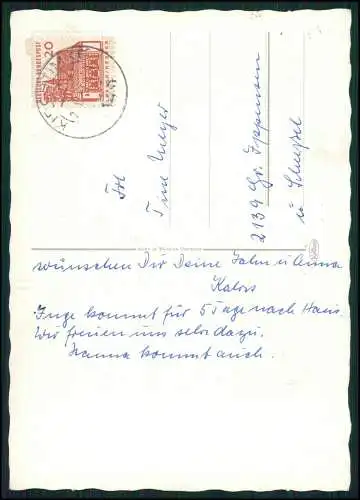 DEUTSCHE BUNDESPOST
20
Frl
Tine Meyer
2139 Gr. Ippensen
ü
wünschen Dir Deine Jahn u. Anna
Inge kommt für 5 Tage nach Haus.
Wir freuen uns sehr dazu.
Hanna kommt auch.